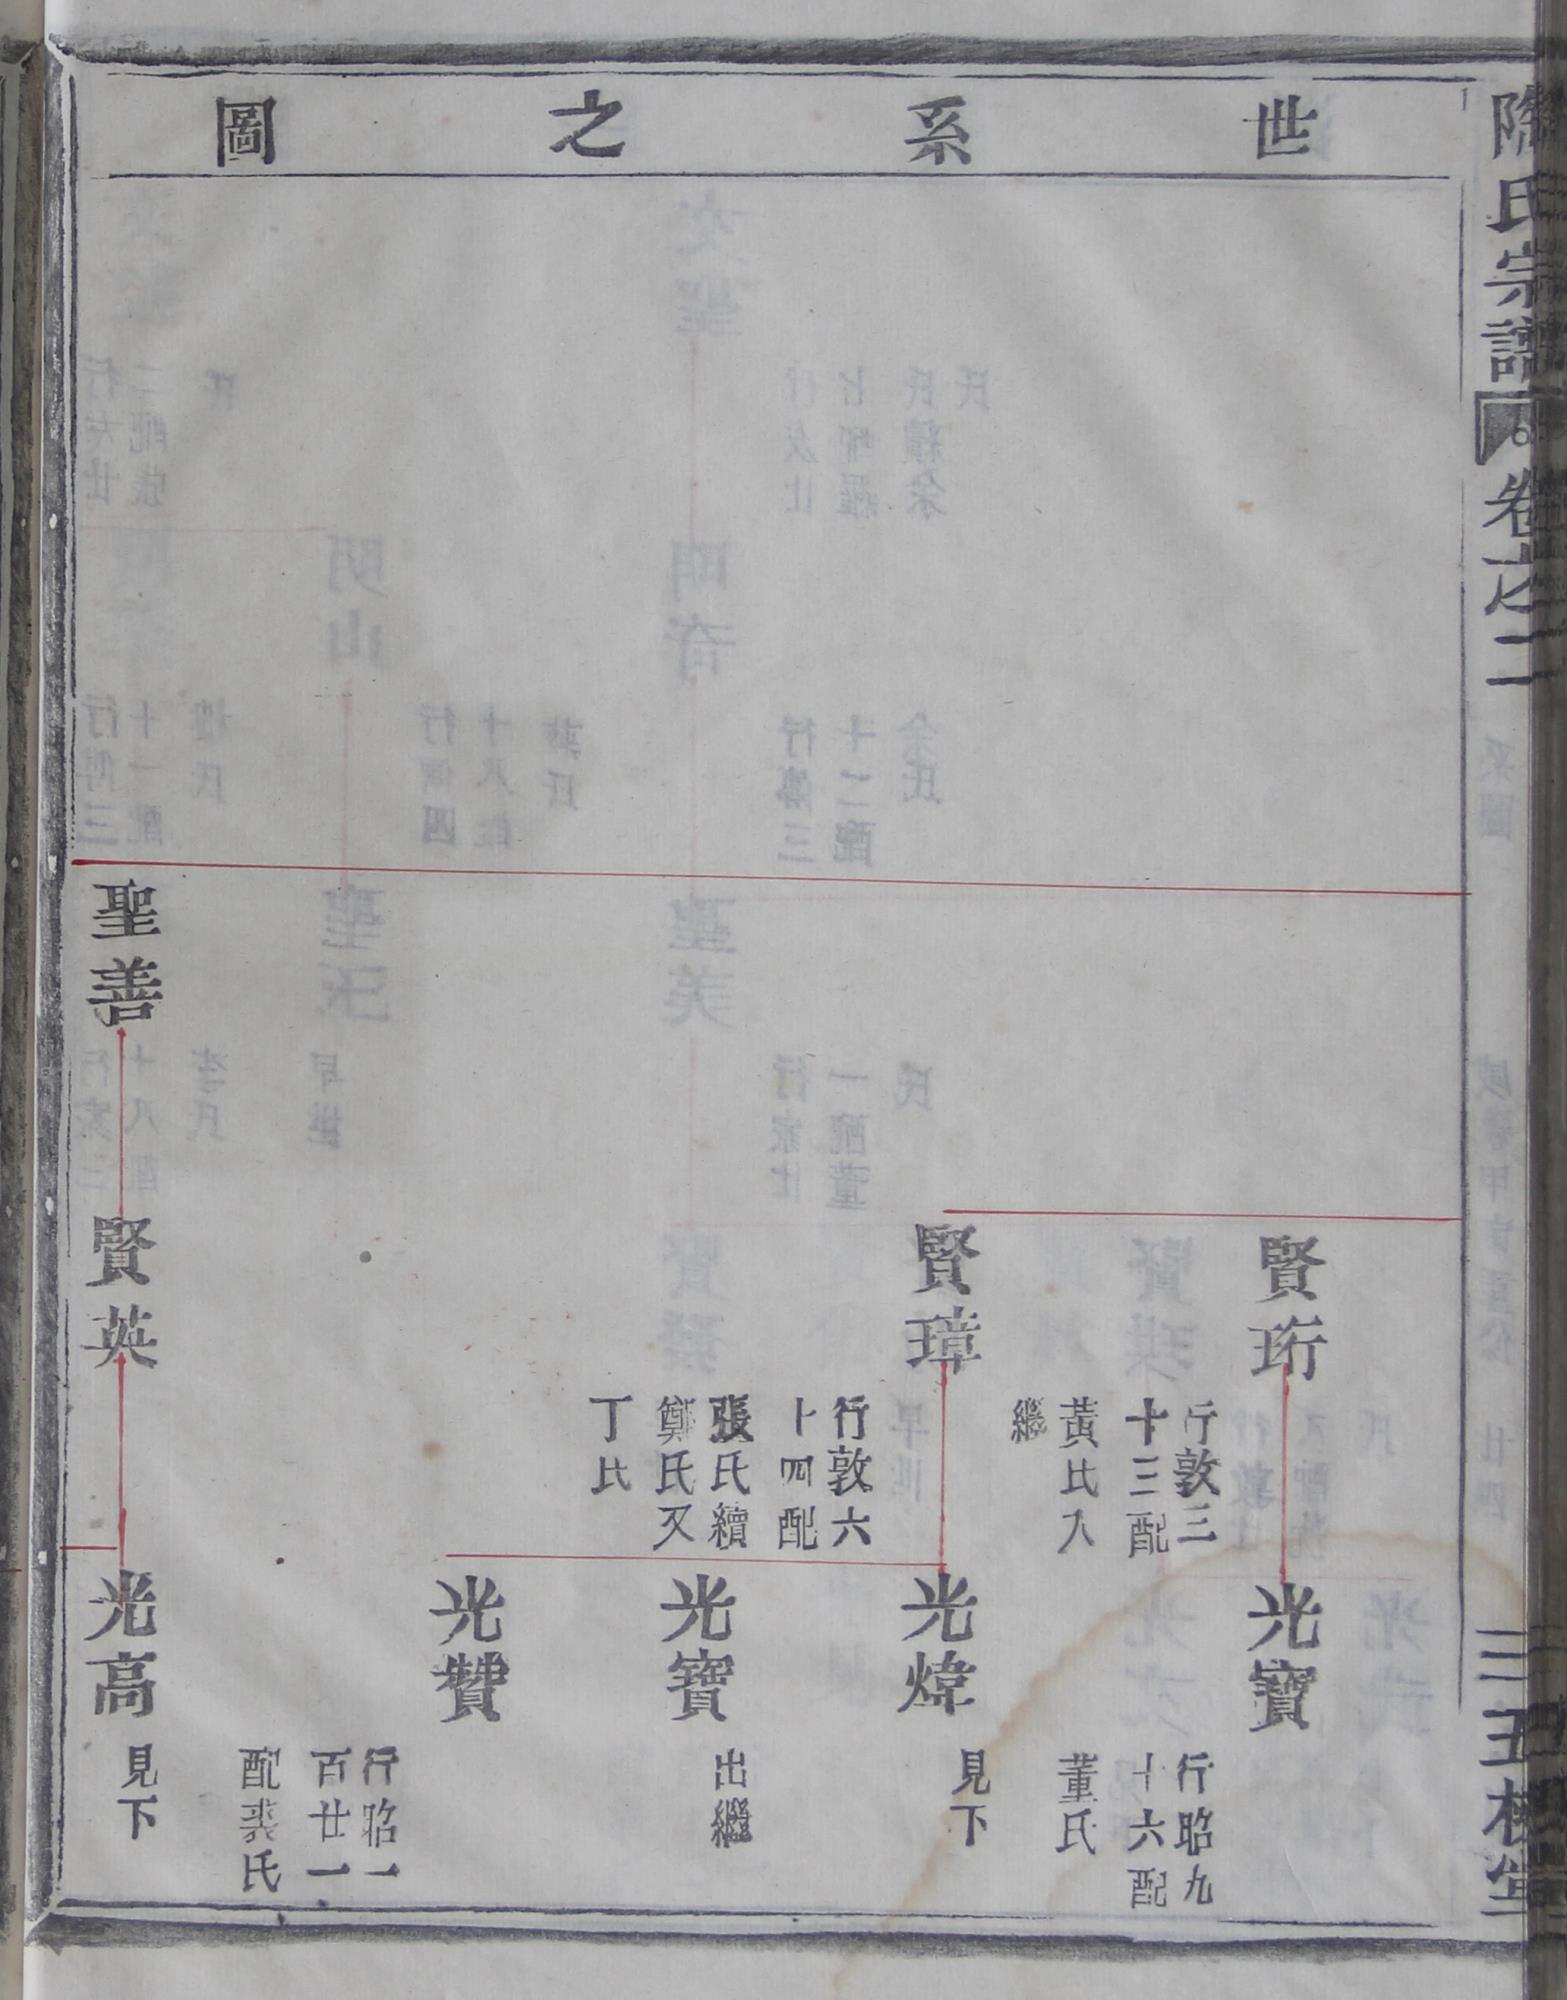 陶氏宗譜
卷之二
三五柳堂
世系之圖
賢珩
行敦三
十三配
黃氏入
繼
光寶
行昭九
十六配
董氏
賢璋
行敦六
十四配
張氏續
鄭氏又
丁氏
光煒
見下
光寶
出繼
光贊
行昭一
百廿一
配裘氏
聖善
賢英
光高
見下